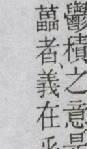 鬱積之意
者義在